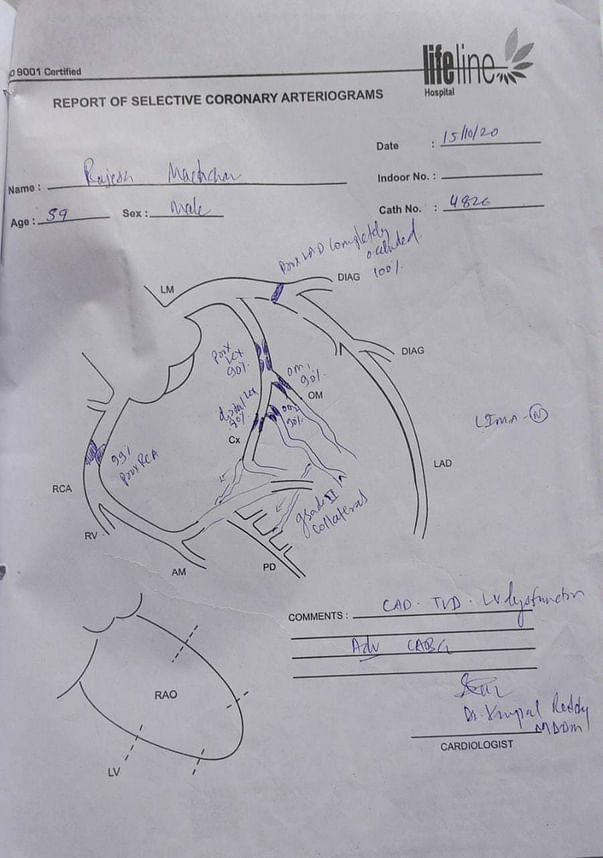 9001 Certified
lifeline
Hospital
REPORT OF SELECTIVE CORONARY ARTERIOGRAMS
Date : 15/10/20
Name : Rajesh
Indoor No. :
Age : 59 Sex : Male
Cath No. : 4826
Prox LAD completely
occluded
100%
LM
DIAG
DIAG
Prox
LCX
90%
OM1
90%
OM
distal LCX
90%
OM2
90%
Cx
LIMA - N
99%
Prox RCA
LAD
RCA
grade III
collateral
RV
AM
PD
COMMENTS : CAD - TVD - LV dysfunction
Adv CABG
RAO
Reddy
CARDIOLOGIST
LV